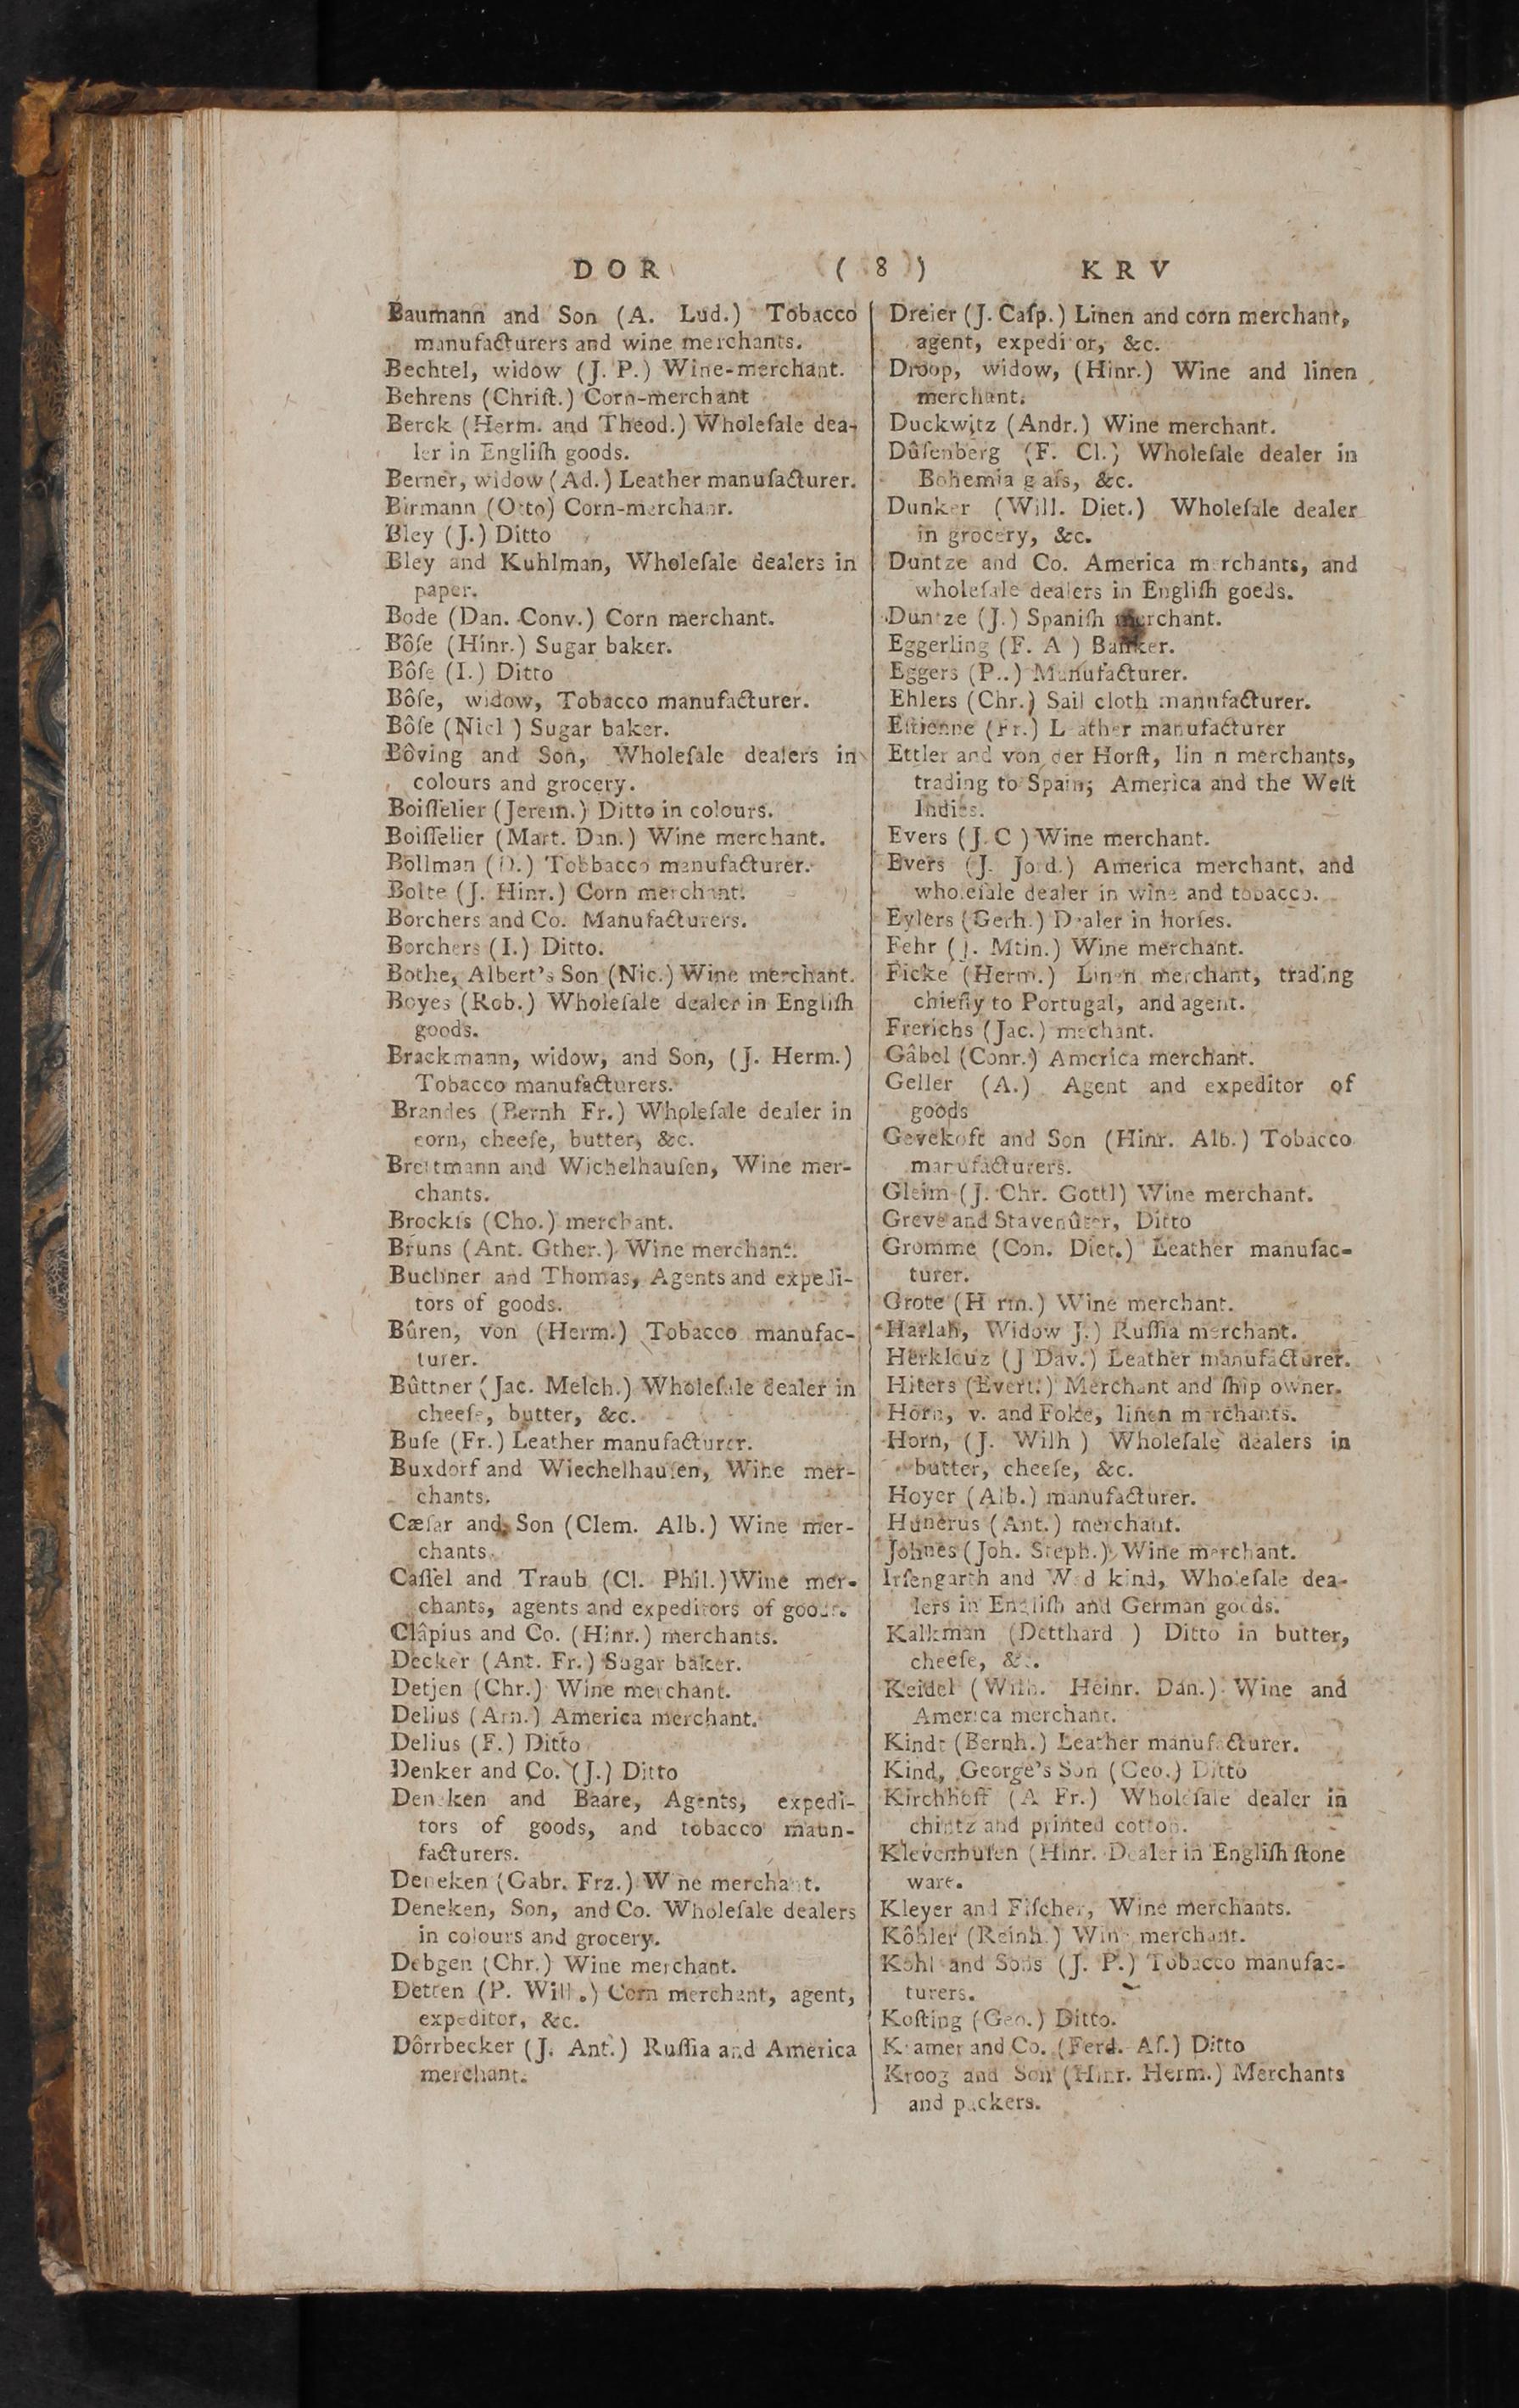 DOR ( 8 ) KRV
Baumann and Son (A. Lud.) Tobacco
manufacturers and wine merchants.
Bechtel, widow (J. P.) Wine-merchant.
Behrens (Chriſt.) Corn-merchant
Berck (Herm. and Theod.) Wholeſale dea-
ler in Engliſh goods.
Berner, widow (Ad.) Leather manufacturer.
Birmann (Otto) Corn-merchant.
Bley (J.) Ditto
Bley and Kuhlman, Wholeſale dealers in
paper.
Bode (Dan. Conv.) Corn merchant.
Bôſe (Hinr.) Sugar baker.
Bôſe (I.) Ditto
Bôſe, widow, Tobacco manufacturer.
Bôſe (Nicl ) Sugar baker.
Bôving and Son, Wholeſale dealers in
colours and grocery.
Boiſſelier (Jerem.) Ditto in colours.
Boiſſelier (Mart. Dan.) Wine merchant.
Bollman (D.) Tobbacco manufacturer.
Bolte (J. Hinr.) Corn merchant.
Borchers and Co. Manufacturers.
Borchers (I.) Ditto.
Bothe, Albert's Son (Nic.) Wine merchant.
Boyes (Rob.) Wholeſale dealer in Engliſh
goods.
Brackmann, widow, and Son, (J. Herm.)
Tobacco manufacturers.
Brandes (Bernh Fr.) Wholeſale dealer in
corn, cheeſe, butter, &c.
Brettmann and Wichelhauſen, Wine mer-
chants.
Brockſs (Cho.) merchant.
Bruns (Ant. Gther.) Wine merchant.
Buchner and Thomas, Agents and expedi-
tors of goods.
Bûren, von (Herm.) Tobacco manufac-
turer.
Bûttner (Jac. Melch.) Wholeſale dealer in
cheeſe, butter, &c.
Buſe (Fr.) Leather manufacturer.
Buxdorf and Wiechelhauſen, Wine mer-
chants.
Cæſar and Son (Clem. Alb.) Wine mer-
chants.
Caſſel and Traub (Cl. Phil.) Wine mer-
chants, agents and expeditors of goods.
Clâpius and Co. (Hinr.) merchants.
Decker (Ant. Fr.) Sugar baker.
Detjen (Chr.) Wine merchant.
Delius (Arn.) America merchant.
Delius (F.) Ditto
Denker and Co. (J.) Ditto
Deneken and Baare, Agents, expedi-
tors of goods, and tobacco maun-
facturers.
Deneken (Gabr. Frz.) Wine merchant.
Deneken, Son, and Co. Wholeſale dealers
in colours and grocery.
Debgen (Chr.) Wine merchant.
Detten (P. Will.) Corn merchant, agent,
expeditor, &c.
Dôrrbecker (J. Ant.) Ruſſia and America
merchant.
Dreier (J. Caſp.) Linen and corn merchant,
agent, expeditor, &c.
Droop, widow, (Hinr.) Wine and linen
merchant.
Duckwitz (Andr.) Wine merchant.
Dûſenberg (F. Cl.) Wholeſale dealer in
Bohemia glaſs, &c.
Dunker (Will. Diet.) Wholeſale dealer
in grocery, &c.
Duntze and Co. America merchants, and
wholeſale dealers in Engliſh goods.
Duntze (J.) Spaniſh merchant.
Eggerling (F. A ) Banker.
Eggers (P..) Manufacturer.
Ehlers (Chr.) Sail cloth mannfacturer.
Ettienne (Fr.) Leather manufacturer
Ettler and von der Horſt, linen merchants,
trading to Spain, America and the Weſt
Indies.
Evers (J. C ) Wine merchant.
Evers (J. Jord.) America merchant, and
wholeſale dealer in wine and tobacco.
Eylers (Gerh.) Dealer in horſes.
Fehr (J. Mtin.) Wine merchant.
Ficke (Herm.) Linen merchant, trading
chiefly to Portugal, and agent.
Frerichs (Jac.) mechant.
Gâbel (Conr.) America merchant.
Geller (A.) Agent and expeditor of
goods
Gevekoft and Son (Hinr. Alb.) Tobacco
manufacturers.
Gleim (J. Chr. Gottl) Wine merchant.
Greve and Stavenûter, Ditto
Gromme (Con. Diet.) Leather manufac-
turer.
Grote (Herm.) Wine merchant.
Harlah, Widow J.) Ruſſia merchant.
Herkleuz (J Dav.) Leather manufacturer.
Hiters (Evert.) Merchant and ſhip owner.
Horn, v. and Foke, linen merchants.
Horn, (J. Wilh ) Wholeſale dealers in
butter, cheeſe, &c.
Hoyer (Alb.) manufacturer.
Hunerus (Ant.) merchant.
Johnes (Joh. Steph.) Wine merchant.
Irſengarth and kind, Wholeſale dea-
lers in Engliſh and German goods.
Kalkman (Detthard ) Ditto in butter,
cheeſe, &c.
Keidel (Wilh. Heinr. Dan.) Wine and
America merchant.
Kindt (Bernh.) Leather manufacturer.
Kind, George's Son (Geo.) Ditto
Kirchhoff (A Fr.) Wholeſale dealer in
chintz and printed cotton.
Klevenhuſen (Hinr. Dealer in Engliſh ſtone
ware.
Kleyer and Fiſcher, Wine merchants.
Kôhler (Reinh.) Wine merchant.
Kohl and Sons (J. P.) Tobacco manufac-
turers.
Koſting (Geo.) Ditto.
Kramer and Co. (Ferd. Aſ.) Ditto
Kroog and Son (Hinr. Herm.) Merchants
and packers.